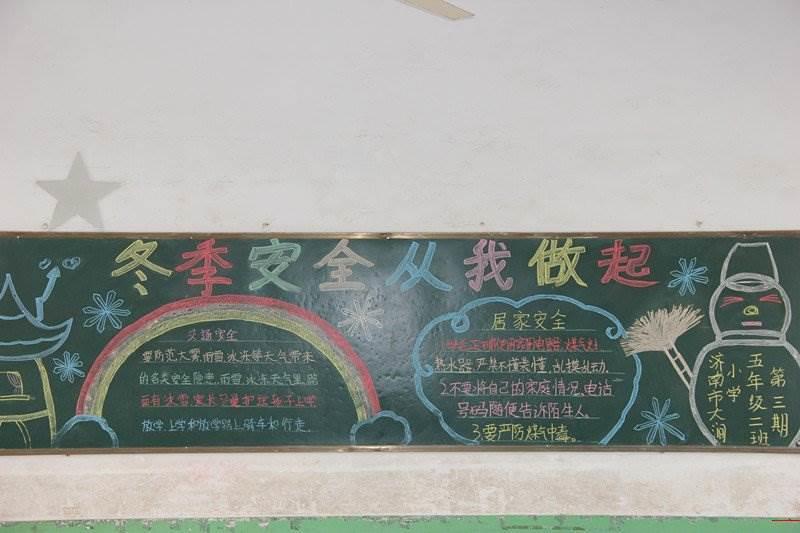 冬季安全从我做起
交通安全
要防范大雾,雨雪,冰冻等天气带来
的各类安全隐患,雨雪,冰冻天气里,路
面有冰雪,家长
放学,上学和放学路上骑车和行走.
居家安全
热水器,严禁不懂装懂,乱摸乱动.
2不要将自己的家庭情况,电话
号码随便告诉陌生人.
3要严防煤气中毒.
第三期
五年级二班
小学
济南市大涧